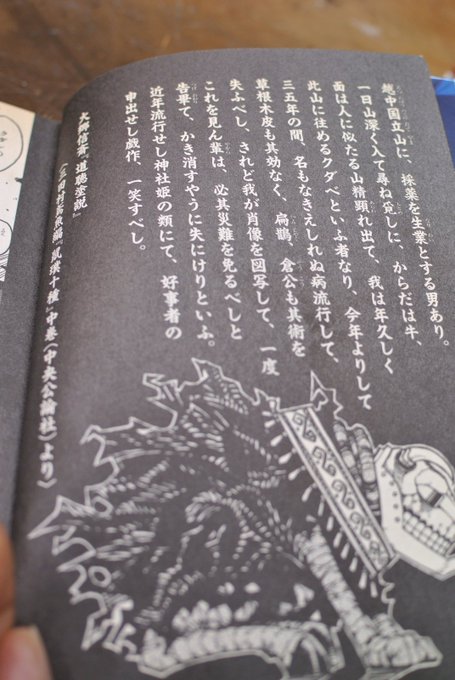 越中国立山に、採薬を生業とする男あり。
一日山深く入て尋ね覓しに、からだは牛、
面は人に似たる山精顕れ出て、我は年久しく
此山に住めるクダベといふ者なり、今年よりして
三五年の間、名もなきえしれぬ病流行して、
草根木皮も其効なく、扁鵲、倉公も其術を
失ふべし、されど我が肖像を図写して、一度
これを見ん輩は、必其災難を免るべしと
告畢て、かき消すやうに失にけりといふ。
近年流行せし神社姫の類にて、好事者の
申出せし戯作、一笑すべし。
大郷信斎『道聴塗説』
（三田村鳶魚編『鼠璞十種』中巻（中央公論社）より）